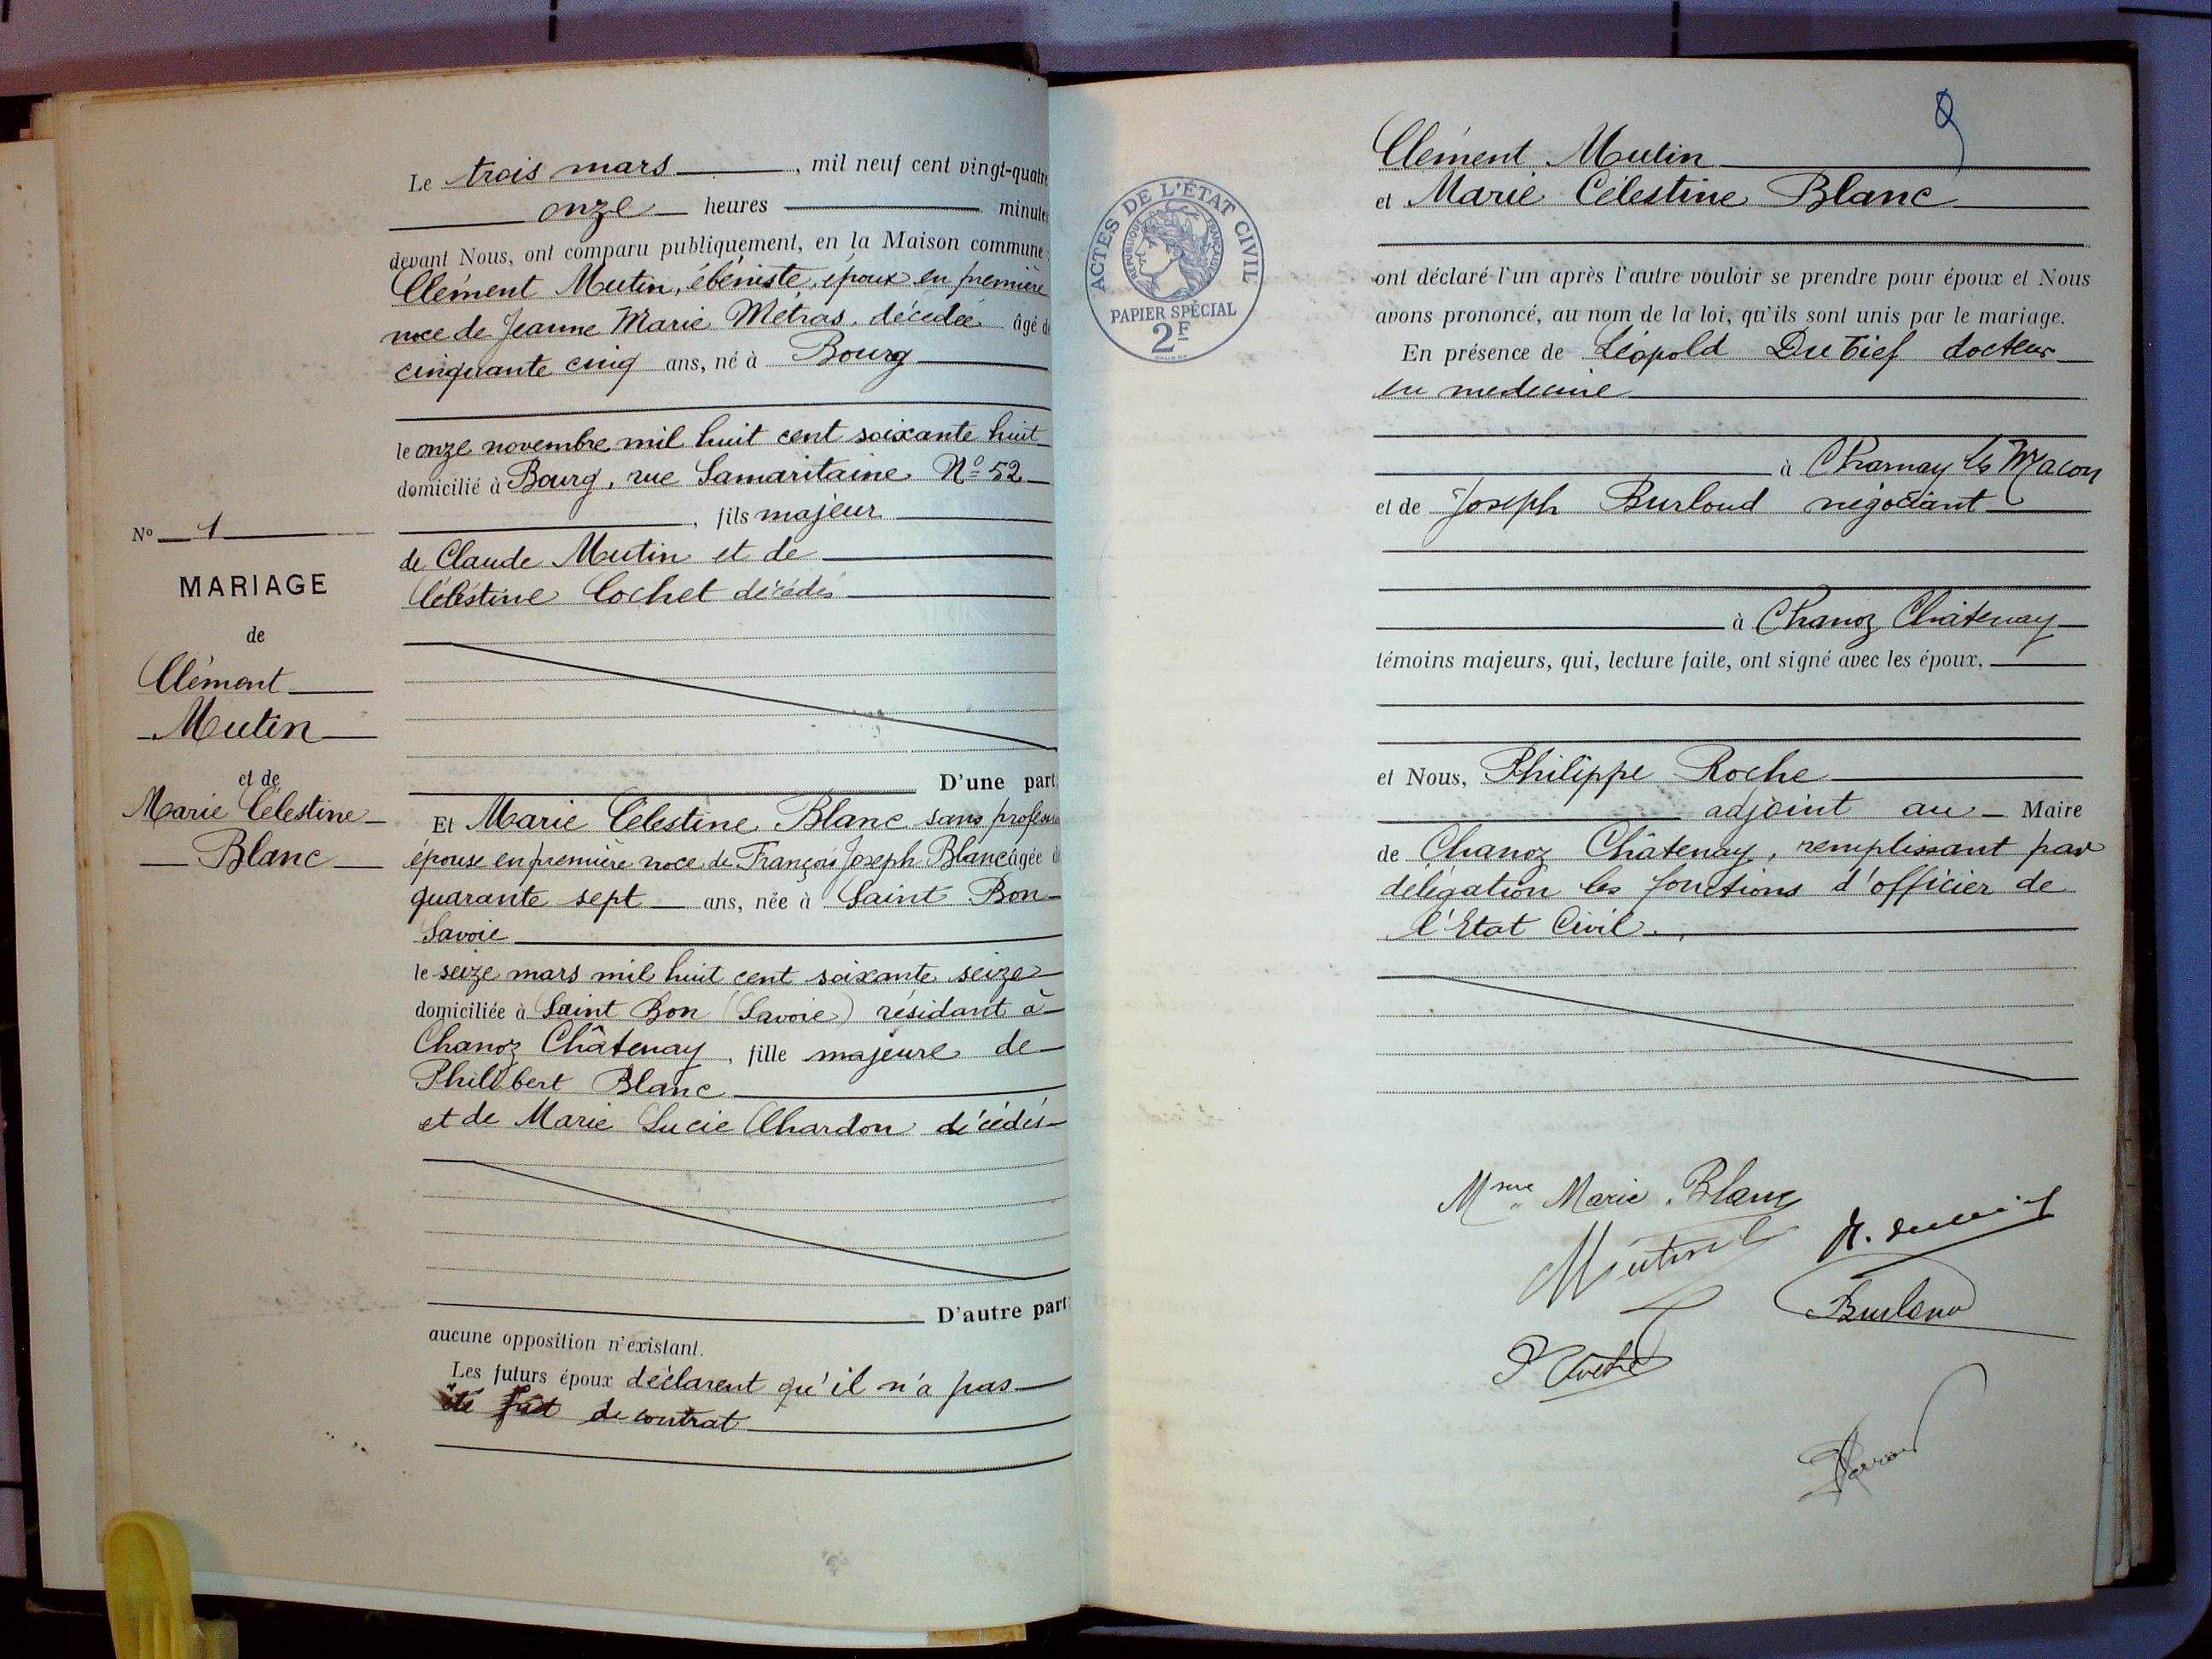 Le trois mars, mil neuf cent vingt-quatre
onze heures minutes
devant Nous, ont comparu publiquement, en la Maison commune
Clément Mutin, ébéniste, époux en première
noce de Jeanne Marie Métras, décédée âgé de
cinquante cinq ans, né à Bourg
le onze novembre mil huit cent soixante huit
domicilié à Bourg, rue Samaritaine No 52
, fils majeur
de Claude Mutin et de
Célestine Cochet décédés
D'une part
Et Marie Célestine Blanc sans profession
épouse en première noce de François Joseph Blanc âgée de
quarante sept ans, née à Saint Bon
Savoie
le seize mars mil huit cent soixante seize
domiciliée à Saint Bon (Savoie) résidant à
Chanoz Châtenay, fille majeure de
Philibert Blanc
et de Marie Lucie Chardon décédés
D'autre part
aucune opposition n'existant.
Les futurs époux déclarent qu'il n'a pas
été fait de contrat
No 1
MARIAGE
de
Clément
Mutin
et de
Marie Célestine
Blanc
ACTES DE L'ÉTAT CIVIL
RÉPUBLIQUE FRANÇAISE
PAPIER SPÉCIAL
2F
9
Clément Mutin
et Marie Célestine Blanc
ont déclaré l'un après l'autre vouloir se prendre pour époux et Nous
avons prononcé, au nom de la loi, qu'ils sont unis par le mariage.
En présence de Léopold Dutief docteur
en medecine
à Charnay les Macon
et de Joseph Burloud négociant
à Chanoz Châtenay
témoins majeurs, qui, lecture faite, ont signé avec les époux.
et Nous, Philippe Roche
adjoint au Maire
de Chanoz Châtenay, remplissant par
délégation les fonctions d'officier de
l'Etat Civil.
Mme Marie Blanc
Mutin
Burloud
P Roche